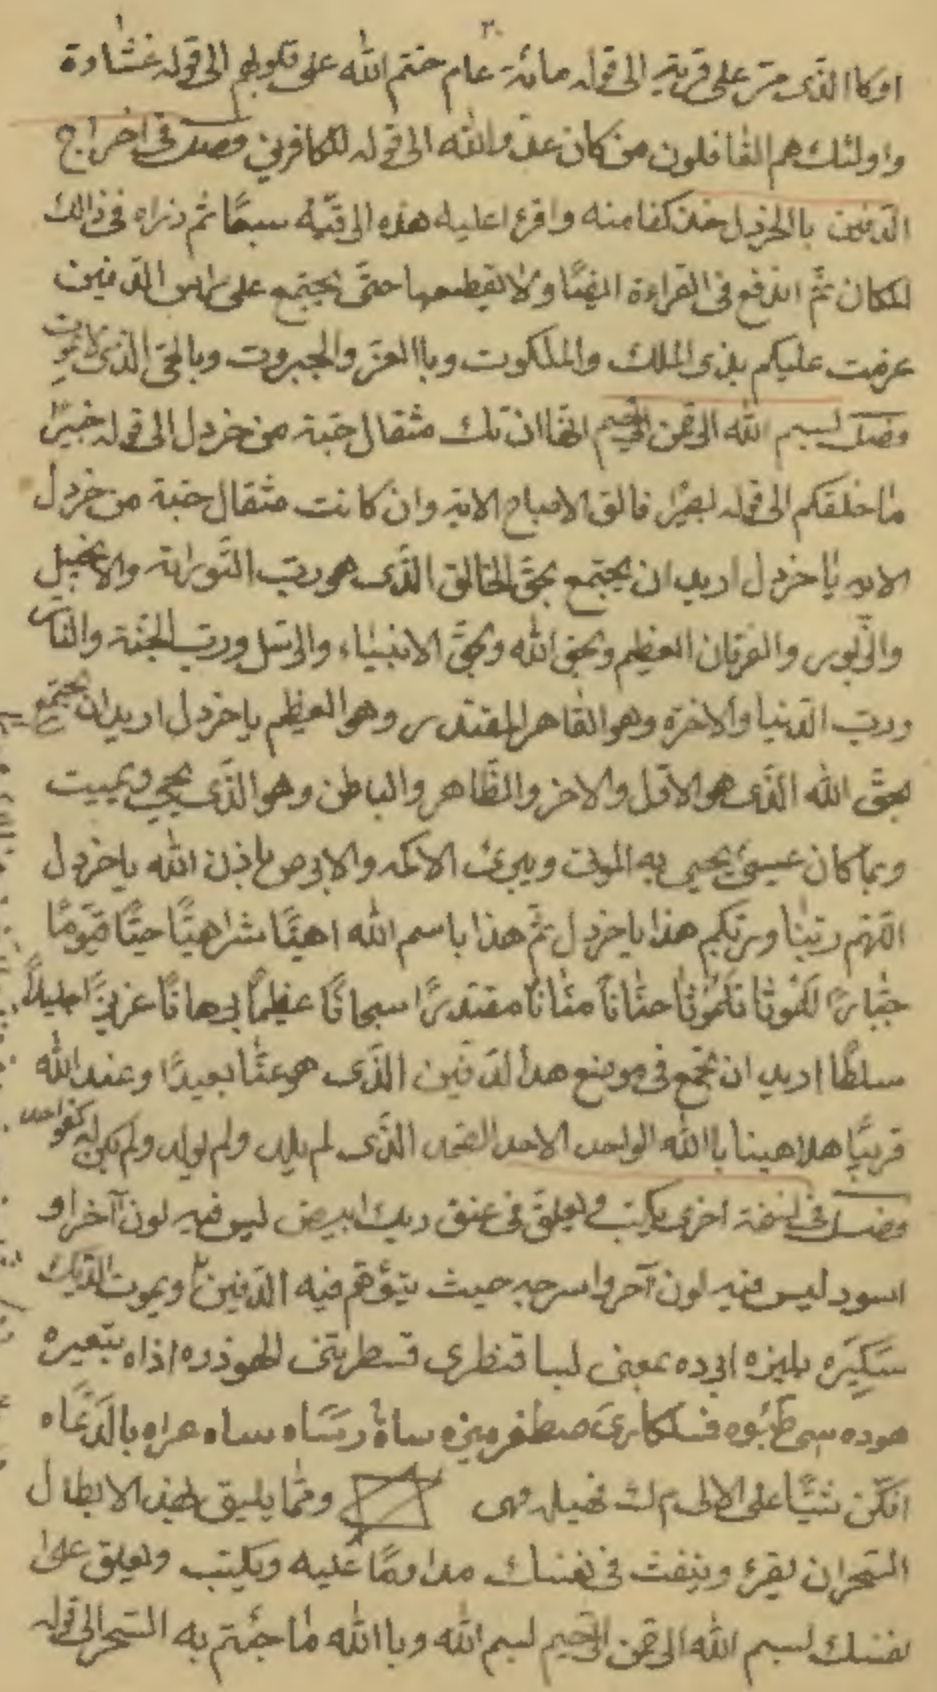 ٣٠
اوكاالذى مرّ على قرية الى قوله مائة عام ختم الله على قلوبهم الى قوله غشاوة
واولئك هم الغافلون من كان عدوالله الى قوله للكافرين فصل فى اخراج
الدفين باالخردل خذ كفا منه واقرء اعليه هذه سبعًا ثم ذراه فى ذالك
المكان ثمّ اندفع فى القراءة ايضًا ولا تقطعها حتّى يجتمع على راس الدفين
عزمت عليكم بذى الملك والملكوت وباالعزّ والجبروت وبالحى الذى لا يموت
فصل بسم الله الرحمن الرحيم انّها ان تك مثقال حبّة من خردل الى قوله خبيرًا
ما خلقكم الى قوله بصيرًا فالق الاصباح الاية وان كانت مثقال حبة من خردل
الاية يا خردل اريد ان يجتمع بحق الخالق الذى هو ربّ التّوراة والانجيل
والزّبور والفرقان العظيم وبحق الله وبحقّ الانبياء والرسل وربّ الجنّة والنار
وربّ الدنيا والاخرة وهو القاهر المقتدر وهو العظيم يا خردل اريد ان يجتمع
بحقّ الله الذى هو الاوّل والاخر والظاهر والباطن وهو الذّى يحيى ويميت
وبما كان عيسى يحيى به الموتى ويبرئ الاكمه والابرص باذن الله يا خردل
اللهم ربّنا وربّكم هذا يا خردل ثمّ هذا باسم الله اهيًّا شراهيًّا حيًّا قيّومًا
جبّارًا حنّانًا منّانًا مقتدرًا سبحانًا عظيمًا برهانًا عزيزًا جليلاً
سلطًا اريد ان تجمع فى موضع هذا لدفين الذّى هو عنّا بعيدًا وعند الله
قريبًا هلا هينا باالله الواحد الاحد الصّمد الذّى لم يلد ولم يولد ولم يكن له كفوا احد
فصل فى نسخة اخرى يكتب ويعلّق فى عنق ديك ابيض ليس فيه لون آخر او
اسود ليس فيه لون آخر واسرحه حيث يتوهّم فيه الدّفين ويموت الديك
افكّن شيًّا على وممّا يليق لهذ الابطال
السّحران يقرء وينفث فى نفسك مداومًا عليه ويكتب وتعلق على
نفسك بسم الله الرحمن الرّحيم بسم الله وباالله ما جئتم به السّحر الى قوله